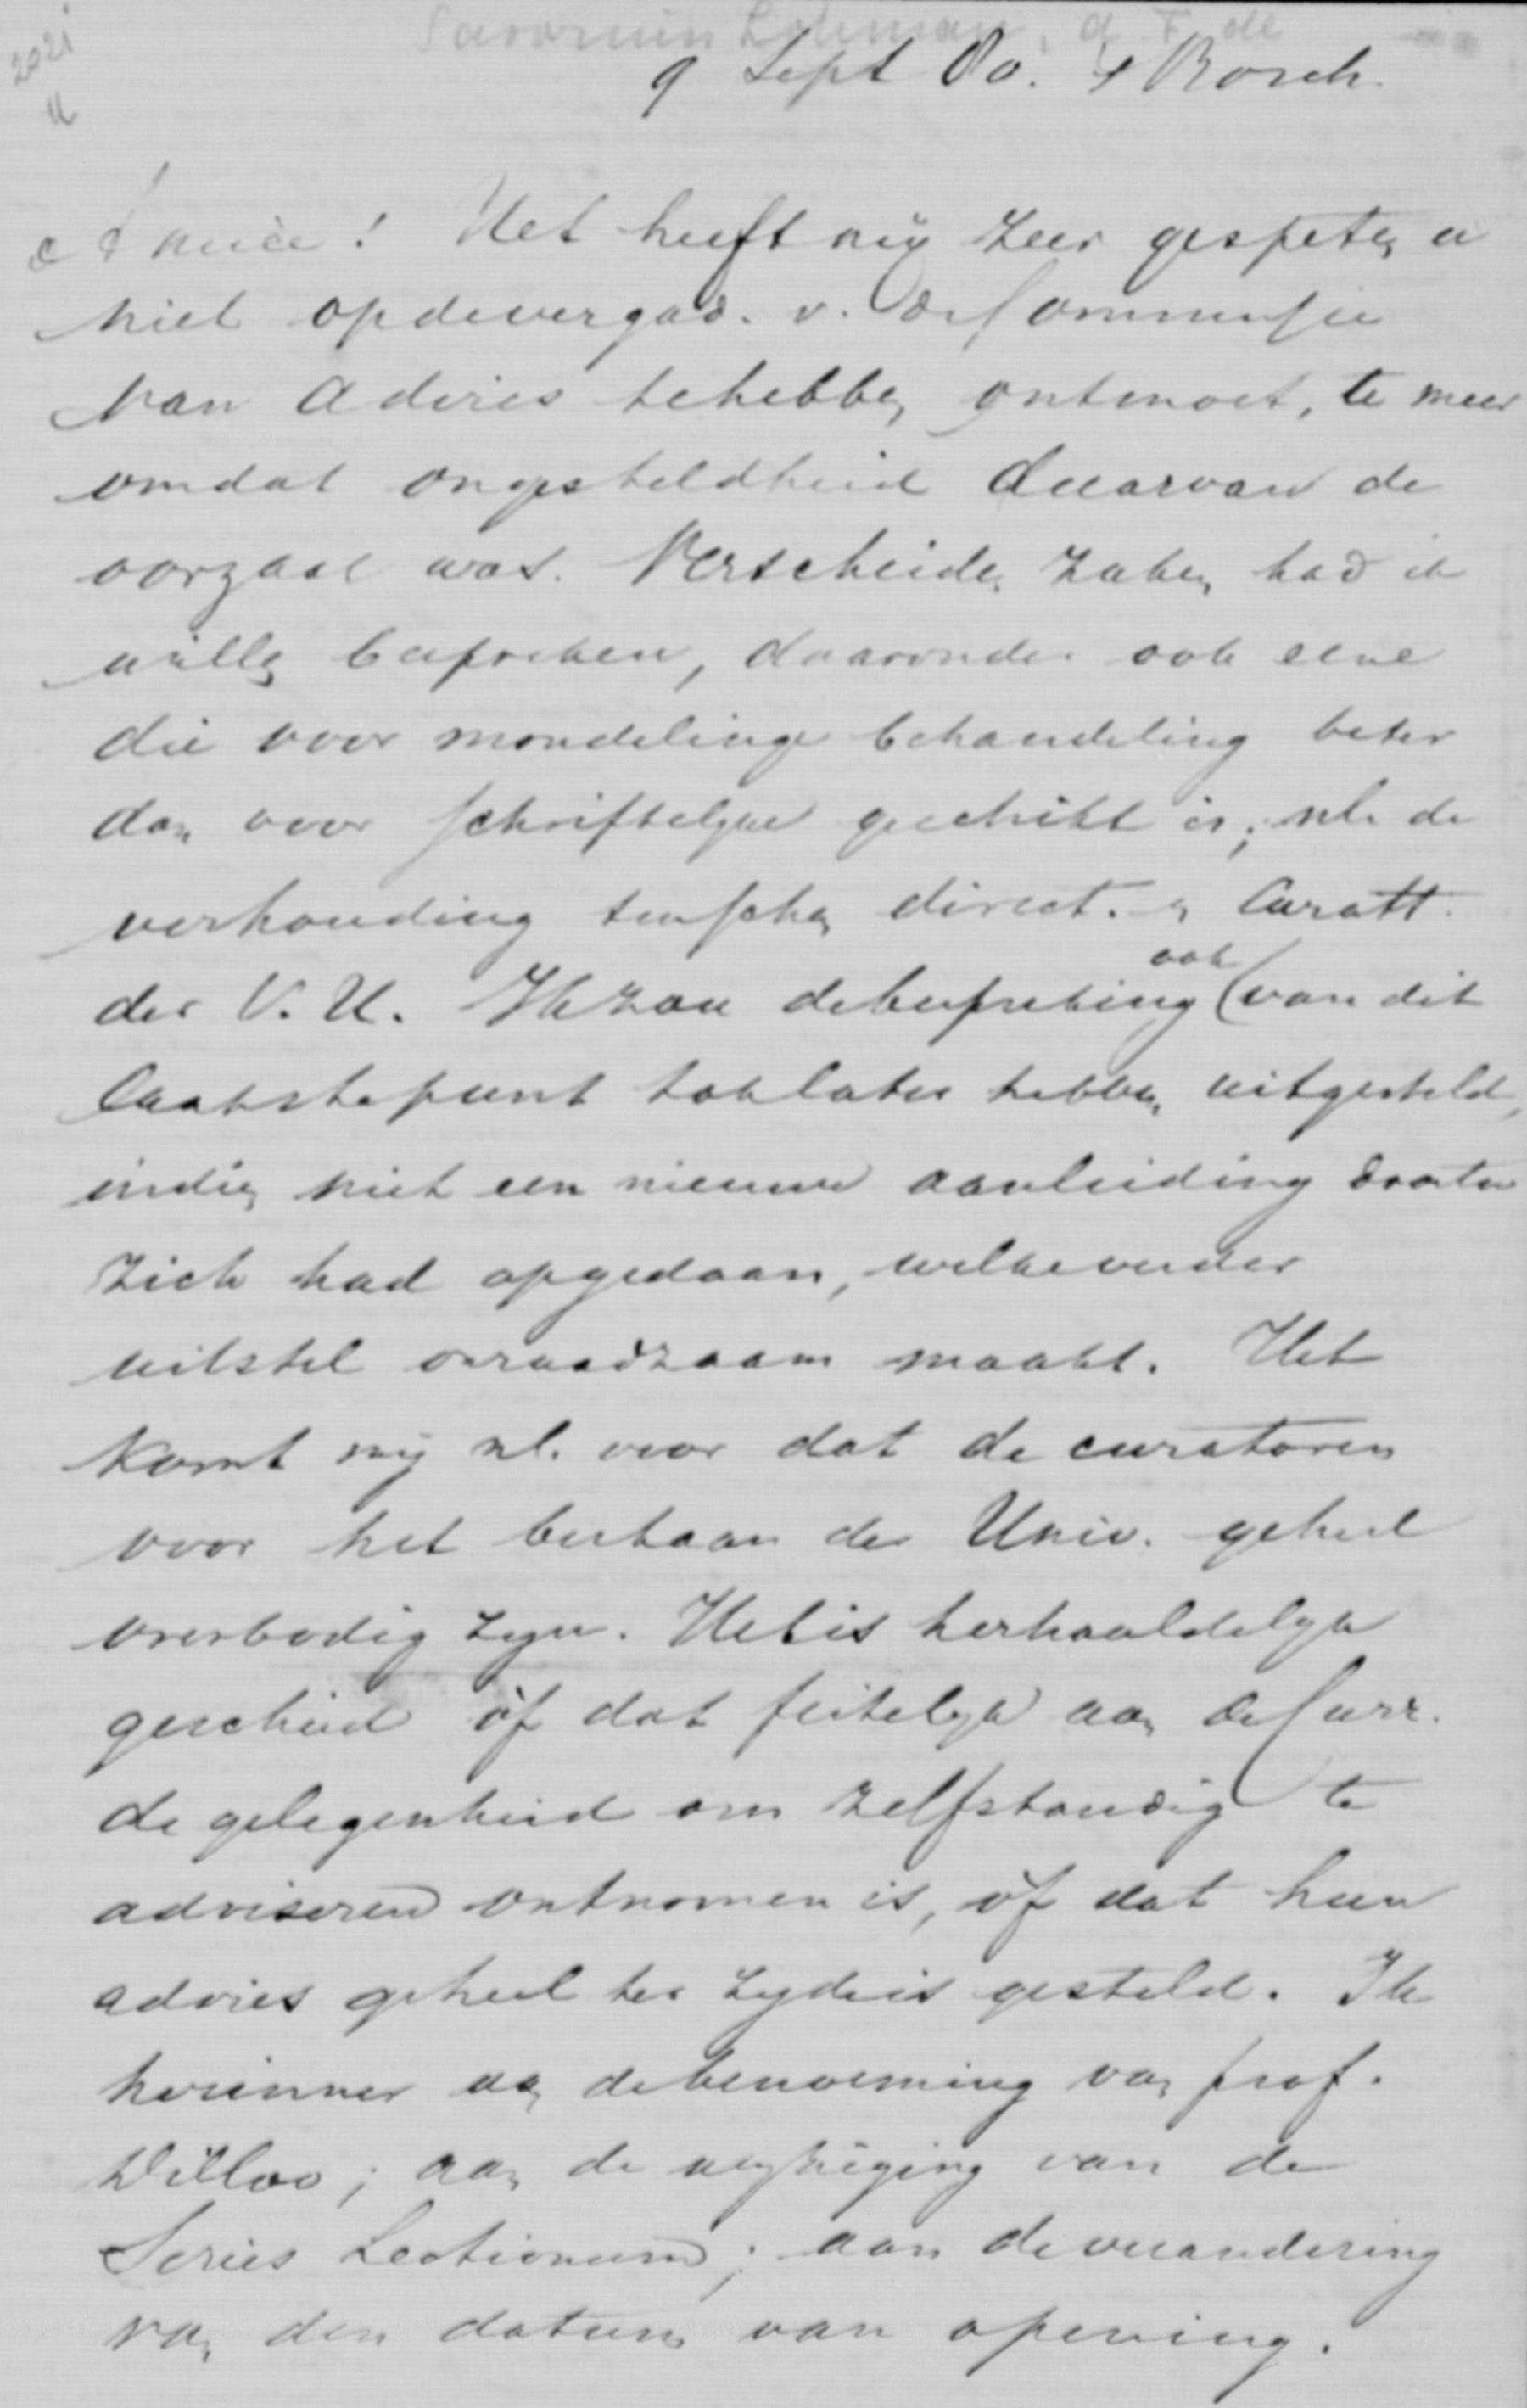 2021
Savornin Lohman, d F. de
9 Sept 80. 's Bosch
Amice! Het heeft mij zeer gespeten u
niet op de vergad. v. de Commissie
van Advies te hebben ontmoet, te meer
omdat ongesteldheid daarvan de
oorzaak was. Verscheiden zaken had ik
willen bespreken, daaronder ook eene
die voor mondelinge behandeling beter
dan voor schriftelijke geschikt is; nl. de
verhouding tusschen direct. en Curatt.
der V. U. Ik zou de bespreking ook van dit
laatste punt tot later hebben uitgesteld,
indien niet een nieuwe aanleiding daartoe
zich had opgedaan, welke verder
uitstel onraadzaam maakt. Het
komt mij nl. voor dat de curatoren
voor het bestaan der Univ. geheel
overbodig zijn. Het is herhaaldelijk
geschied òf dat feitelijk aan de Curr.
de gelegenheid om zelfstandig te
adviseren ontnomen is, òf dat hun
advies geheel ter zijde is gesteld. Ik
herinner aan de benoeming van prof.
Dilloo; aan de van de
Series Lectionum; aan de verandering
van den datum van opening.